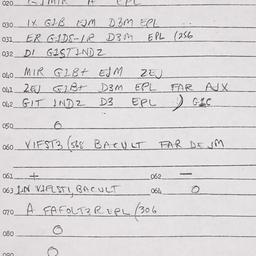 020.
030. IX GIB EJM D3M EPL
031. ER GIDS-IR D3M EPL (256
032. DI GIST INDZ
040. MIR GIB+ EJM ZEJ
041. ZEJ GIB+ D3M EPL FAR AJX
042. GIT INDZ D3 EPL ) GIC
050. O
060. VIFST3 (568 BACULT FAR DE JM
061. + 062. -
063. IN VIFLST1, BACULT 064. O
070. A FAFOLTZR EPL (306
080. O
090. O